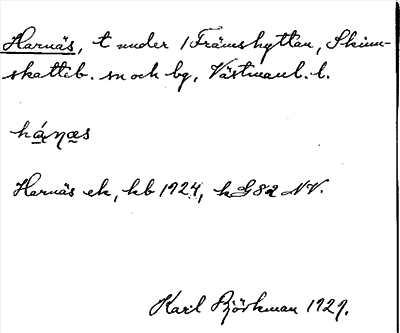 Harnäs, t under 1 Främshyttan, Skinn-
skatteb. sn och bg, Västmanl. l.
hánæs
Harnäs ek, kb 1924, k G82 NV.
Karl Björkman 1929.